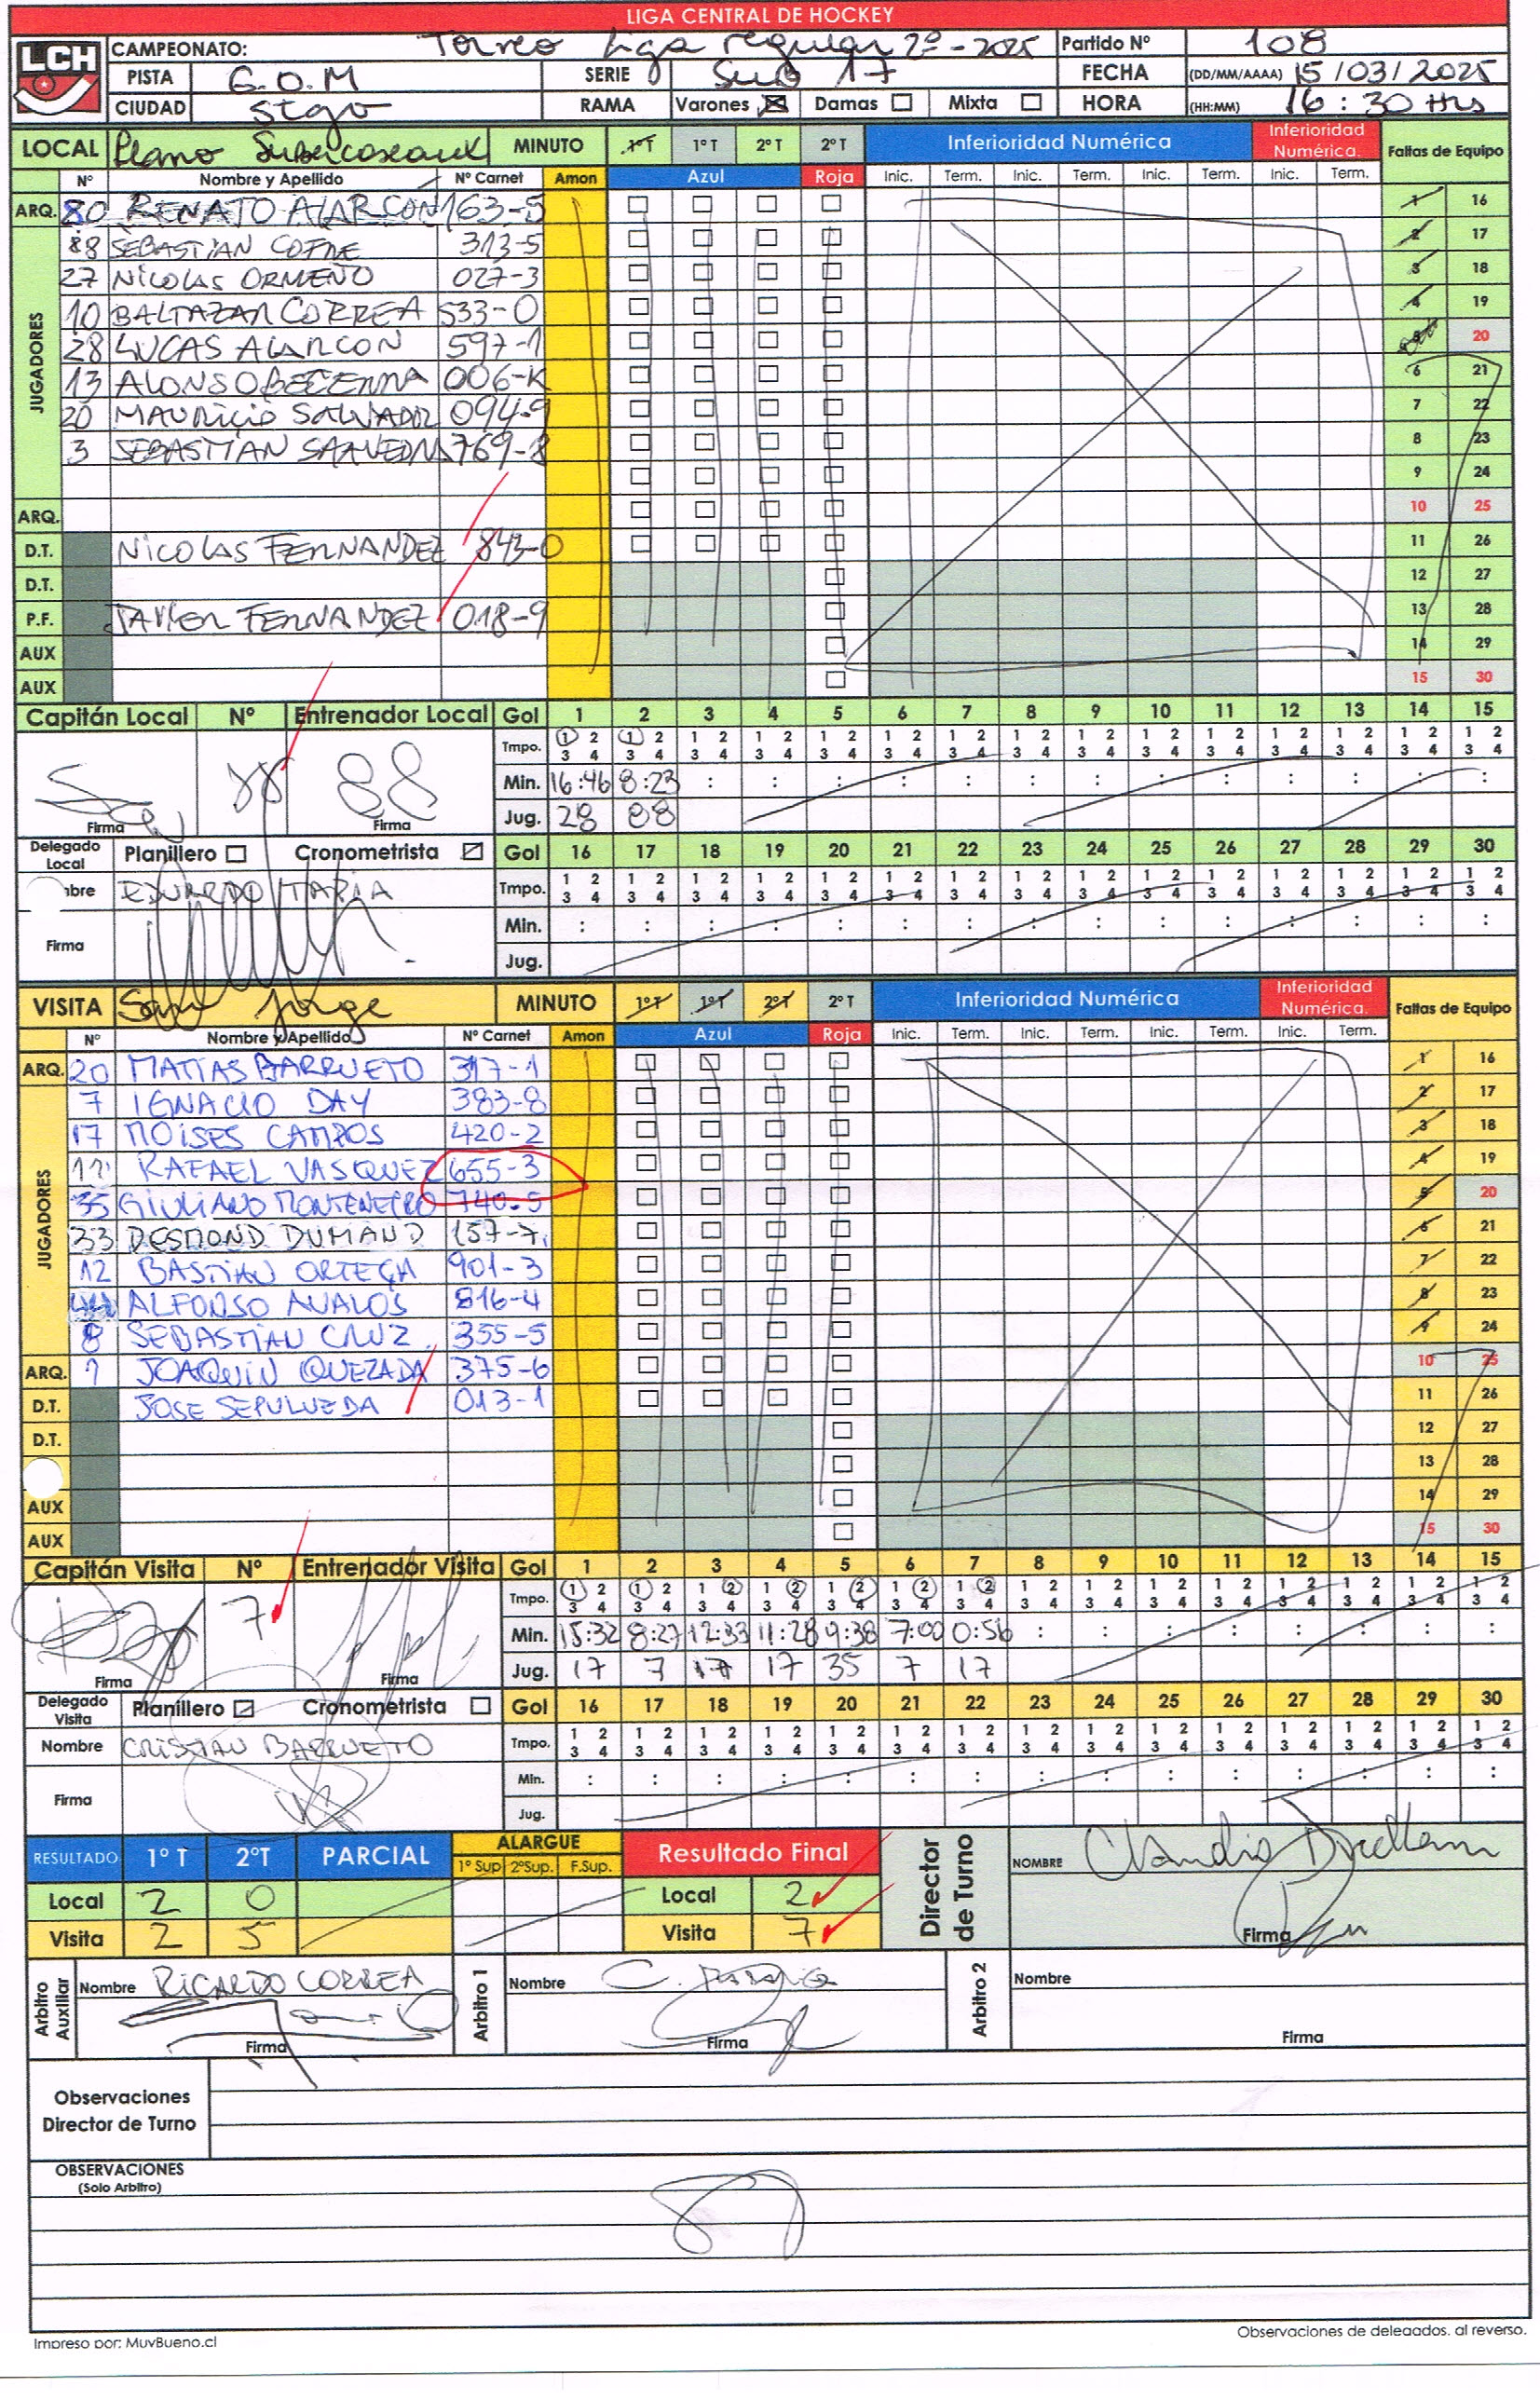 LIGA CENTRAL DE HOCKEY
LCH
CAMPEONATO: Torneo Liga regular 2ª - 2025 Partido Nº 108
PISTA G.O.M SERIE Sub 17 FECHA (DD/MM/AAAA) 15/03/2025
CIUDAD Stgo RAMA Varones Damas Mixta HORA (HH:MM) 16:30 Hrs
LOCAL Llano Subercaseaux MINUTO 1º T 1º T 2º T 2º T Inferioridad Numérica Inferioridad Numérica. Faltas de Equipo
Nº Nombre y Apellido Nº Carnet Amon Azul Roja Inic. Term. Inic. Term. Inic. Term. Inic. Term.
ARQ. 80 RENATO ALARCON 163-5 1 16
JUGADORES
88 SEBASTIAN COFRE 313-5 2 17
27 NICOLAS ORMEÑO 027-3 3 18
10 BALTAZAR CORREA 533-0 4 19
28 LUCAS ALARCON 597-1 20
13 ALONSO BECERRA 006-K 6 21
20 MAURICIO SALVADOR 094-9 7 22
3 SEBASTIAN SAAVEDRA 769-8 8 23
9 24
ARQ. 10 25
D.T. NICOLAS FERNANDEZ 843-0 11 26
D.T. 12 27
P.F. JAVIER FERNANDEZ 018-9 13 28
AUX 14 29
AUX 15 30
Capitán Local Nº Entrenador Local Gol 1 2 3 4 5 6 7 8 9 10 11 12 13 14 15
Tmpo. 1 2 1 2 1 2 1 2 1 2 1 2 1 2 1 2 1 2 1 2 1 2 1 2 1 2 1 2 1 2
3 4 3 4 3 4 3 4 3 4 3 4 3 4 3 4 3 4 3 4 3 4 3 4 3 4 3 4 3 4
88 Min. 16:46 8:23 : : : : : : : : : : : : :
Firma Firma Jug. 28 88
Delegado Local Planillero Cronometrista Gol 16 17 18 19 20 21 22 23 24 25 26 27 28 29 30
mbre EDUARDO TAPIA Tmpo. 1 2 1 2 1 2 1 2 1 2 1 2 1 2 1 2 1 2 1 2 1 2 1 2 1 2 1 2 1 2
3 4 3 4 3 4 3 4 3 4 3 4 3 4 3 4 3 4 3 4 3 4 3 4 3 4 3 4 3 4
Firma Min. : : : : : : : : : : : : : : :
Jug.
VISITA San Jorge MINUTO 1º T 1º T 2º T 2º T Inferioridad Numérica Inferioridad Numérica. Faltas de Equipo
Nº Nombre y Apellido Nº Carnet Amon Azul Roja Inic. Term. Inic. Term. Inic. Term. Inic. Term.
ARQ. 20 MATIAS BARRUETO 317-1 1 16
JUGADORES
7 IGNACIO DAY 383-8 2 17
17 MOISES CAMPOS 420-2 3 18
11 RAFAEL VASQUEZ 655-3 4 19
35 GIULIANO MONTENEGRO 740-5 5 20
33 DESMOND DUMAND 157-7 6 21
12 BASTIAN ORTEGA 901-3 7 22
44 ALFONSO AVALOS 816-4 8 23
8 SEBASTIAN CRUZ 355-5 9 24
ARQ. 1 JOAQUIN QUEZADA 375-6 10 25
D.T. JOSE SEPULVEDA 013-1 11 26
D.T. 12 27
13 28
AUX 14 29
AUX 15 30
Capitán Visita Nº Entrenador Visita Gol 1 2 3 4 5 6 7 8 9 10 11 12 13 14 15
Tmpo. 1 2 1 2 1 2 1 2 1 2 1 2 1 2 1 2 1 2 1 2 1 2 1 2 1 2 1 2 1 2
3 4 3 4 3 4 3 4 3 4 3 4 3 4 3 4 3 4 3 4 3 4 3 4 3 4 3 4 3 4
7 Min. 15:32 8:27 12:33 11:28 9:38 7:00 0:56 : : : : : : : :
Firma Firma Jug. 17 7 17 17 35 7 17
Delegado Visita Planillero Cronometrista Gol 16 17 18 19 20 21 22 23 24 25 26 27 28 29 30
Nombre CRISTIAN BARRUETO Tmpo. 1 2 1 2 1 2 1 2 1 2 1 2 1 2 1 2 1 2 1 2 1 2 1 2 1 2 1 2 1 2
3 4 3 4 3 4 3 4 3 4 3 4 3 4 3 4 3 4 3 4 3 4 3 4 3 4 3 4 3 4
Firma Min. : : : : : : : : : : : : : : :
Jug.
RESULTADO 1º T 2ºT PARCIAL ALARGUE 1º Sup 2ºSup. F.Sup. Resultado Final Director de Turno NOMBRE Claudio
Local 2 0 Local 2
Visita 2 5 Visita 7 Firma
Arbitro Auxiliar Nombre RICARDO CORREA Arbitro 1 Nombre C. Arbitro 2 Nombre
Firma Firma Firma
Observaciones
Director de Turno
OBSERVACIONES
(Solo Arbitro)
Impreso por: MuvBueno.cl Observaciones de delegados, al reverso.